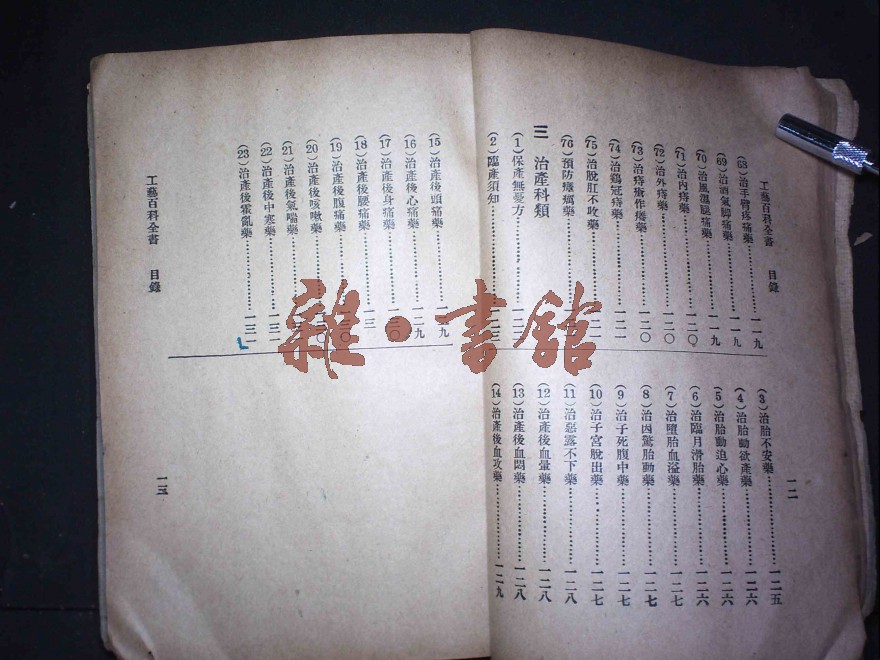 工藝百科全書 目錄 一二
(68)治手臂疼痛藥…………一一九
(69)治濕氣脚痛藥…………一一九
(70)治風濕腿痛藥…………一一九
(71)治內痔藥…………一二〇
(72)治外痔藥…………一二〇
(73)治痔瘡作癢藥…………一二〇
(74)治鷄冠痔藥…………一二一
(75)治脫肛不收藥…………一二
(76)預防癥癘藥…………一二
三 治產科類
(1)保產無憂方…………一二
(2)臨產須知…………一二三
(3)治胎不安藥…………一二五
(4)治胎動欲產藥…………一二六
(5)治胎動迫心藥…………一二六
(6)治臨月滑胎藥…………一二六
(7)治墮胎血溢藥…………一二七
(8)治因驚胎動藥…………一二七
(9)治子死腹中藥…………一二七
(10)治子宮脫出藥…………一二七
(11)治惡露不下藥…………一二八
(12)治產後血暈藥…………一二八
(13)治產後血悶藥…………一二八
(14)治產後血攻藥…………一二九
(15)治產後頭痛藥…………一二九
(16)治產後心痛藥…………一二九
(17)治產後身痛藥…………一三〇
(18)治產後腰痛藥…………一三
(19)治產後腹痛藥…………一三〇
(20)治產後咳嗽藥…………
(21)治產後氣喘藥…………一三
(22)治產後中寒藥…………一三一
(23)治產後霍亂藥…………一三一
工藝百科全書 目錄 一三
雜·書館